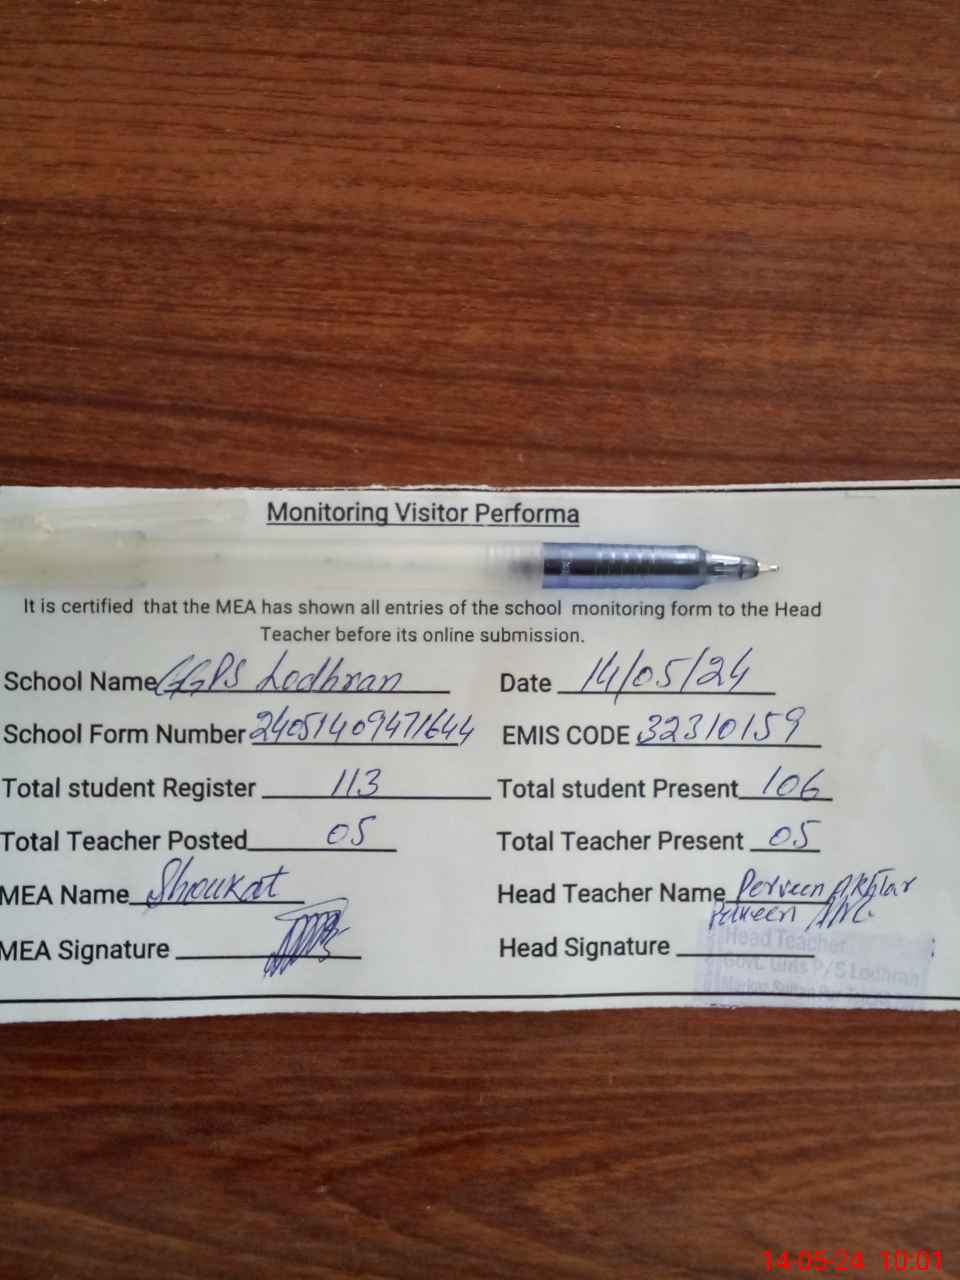 Monitoring Visitor Performa
It is certified that the MEA has shown all entries of the school monitoring form to the Head
Teacher before its online submission.
School Name GGPS Lodhran Date 14/05/24
School Form Number 24051409471644 EMIS CODE 32310159
Total student Register 113 Total student Present 106
Total Teacher Posted 05 Total Teacher Present 05
MEA Name Shoukat Head Teacher Name Perveen Akhtar
Perveen
MEA Signature Head Signature
Head Teacher
Govt. Girls P/S Lodhran
Markaz Sultan Pur
14-05-24 10:01